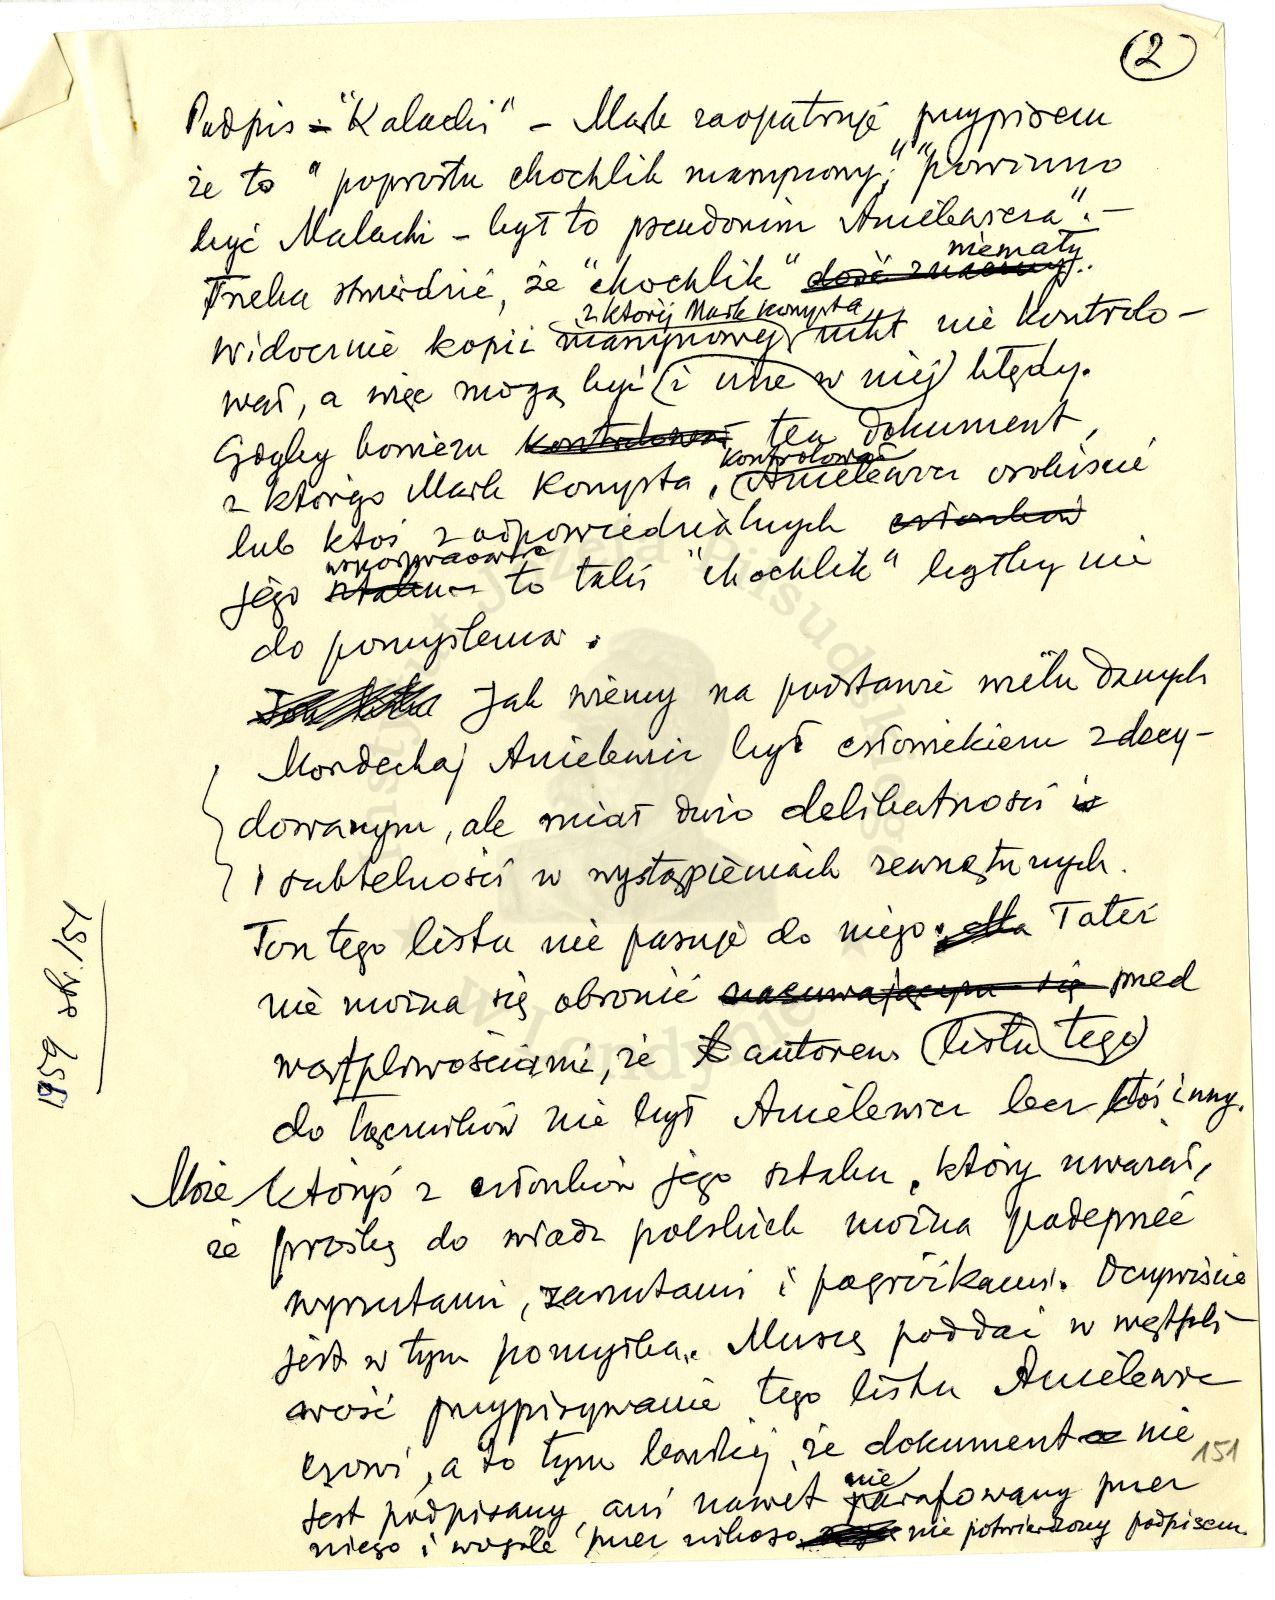 (2)
Podpis - "Kalachi" - Mark zaopatruje przypisem
że to "poprostu chochlik maszynowy;" "powinno
być Malachi - był to pseudonim Anielewicza". -
Trzeba stwierdzić, że "chochlik" dość znaczny niemały.
Widocznie kopii maszynowej, z której Mark korzysta, nikt nie kontrolo-
wał, a więc mogą być (i inne w niej) błędy.
Gdyby bowiem kontrolował ten dokument,
z którego Mark korzysta, kontrolował Anielewicz osobiście
lub ktoś z odpowiedzialnych członków
jego sztabu współpracowników to taki "chochlik" byłby nie
do pomyślenia.
Jak wiemy na podstawie wielu danych
Mordechaj Anielewicz był człowiekiem zdecy-
dowanym, ale miał dużo delikatności i
i subtelności w wystąpieniach zewnętrznych.
Ton tego listu nie pasuje do niego. dla Toteż
nie można się obronić nasuwającym się przed
wątpliwościami, że autorem (listu tego)
do łączników nie był Anielewicz lecz ktoś inny.
Może któryś z członków jego sztabu, który uważał,
że prośbę do władz polskich można podeprzeć
wyrzutami, zarzutami i pogróżkami. Oczywiście
jest w tym pomyłka. Muszę poddać w wątpli-
wość przypisywanie tego listu Anielewi-
czowi, a to tym bardziej, że dokument nie
jest podpisany, ani nawet nie parafowany przez
niego i wogóle przez nikogo nie potwierdzony podpisem.
1959 str. 151
151
www.pilsudski.org.uk